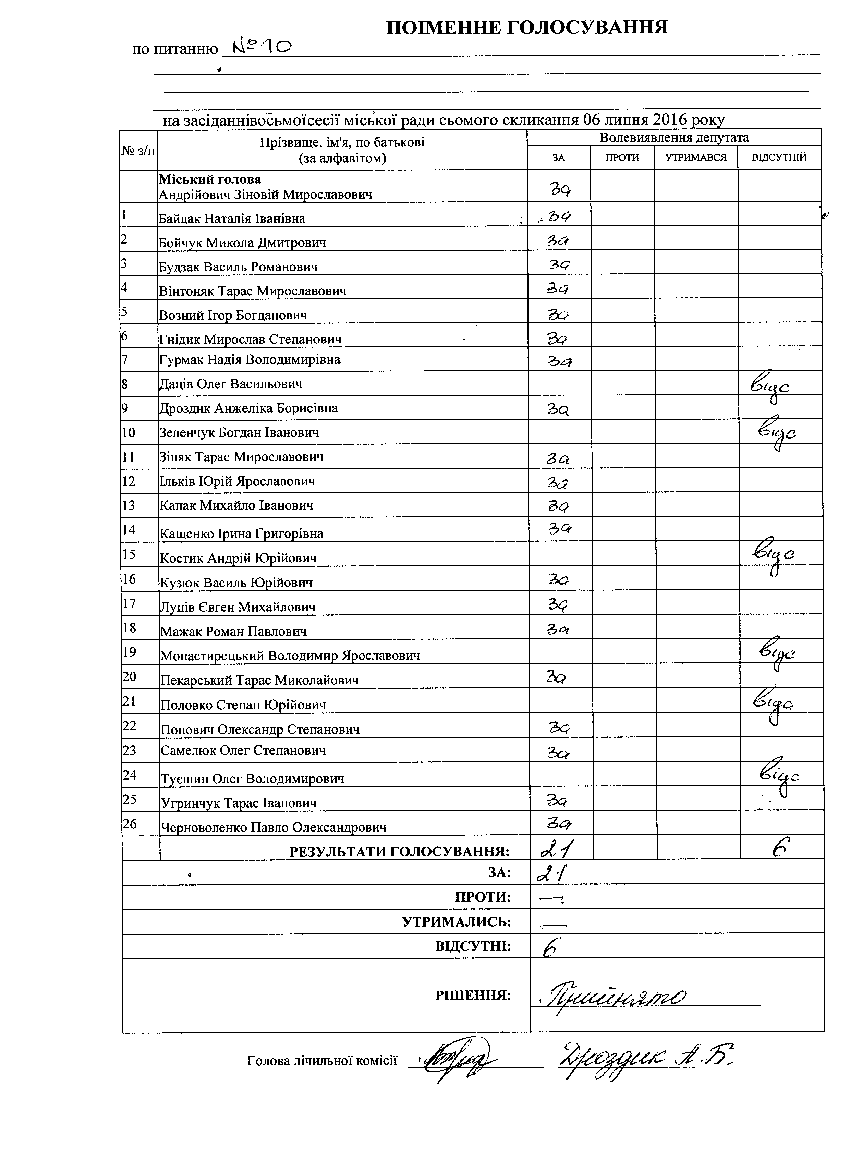 ПОІМЕННЕ ГОЛОСУВАННЯ
по питанню №10
на засіданнівосьмоїсесії міської ради сьомого скликання 06 липня 2016 року
№ з/п Прізвище, ім'я, по батькові (за алфавітом) Волевиявлення депутата
ЗА ПРОТИ УТРИМАВСЯ ВІДСУТНІЙ
Міський голова
Андрійович Зіновій Мирославович за
1 Байцак Наталія Іванівна за
2 Бойчук Микола Дмитрович за
3 Будзак Василь Романович за
4 Вінтоняк Тарас Мирославович за
5 Возний Ігор Богданович за
6 Гнідик Мирослав Степанович за
7 Гурмак Надія Володимирівна за
8 Даців Олег Васильович відс
9 Дроздик Анжеліка Борисівна за
10 Зеленчук Богдан Іванович відс
11 Зіняк Тарас Мирославович за
12 Ільків Юрій Ярославович за
13 Капак Михайло Іванович за
14 Кащенко Ірина Григорівна за
15 Костик Андрій Юрійович відс
16 Кузюк Василь Юрійович за
17 Луців Євген Михайлович за
18 Мажак Роман Павлович за
19 Монастирецький Володимир Ярославович відс
20 Пекарський Тарас Миколайович за
21 Половко Степан Юрійович відс
22 Попович Олександр Степанович за
23 Самелюк Олег Степанович за
24 Туєшин Олег Володимирович відс
25 Угринчук Тарас Іванович за
26 Чорноволенко Павло Олександрович за
РЕЗУЛЬТАТИ ГОЛОСУВАННЯ: 21 6
ЗА: 21
ПРОТИ: —
УТРИМАЛИСЬ: —
ВІДСУТНІ: 6
РІШЕННЯ: Прийнято
Голова лічильної комісії Дроздик А.Б.